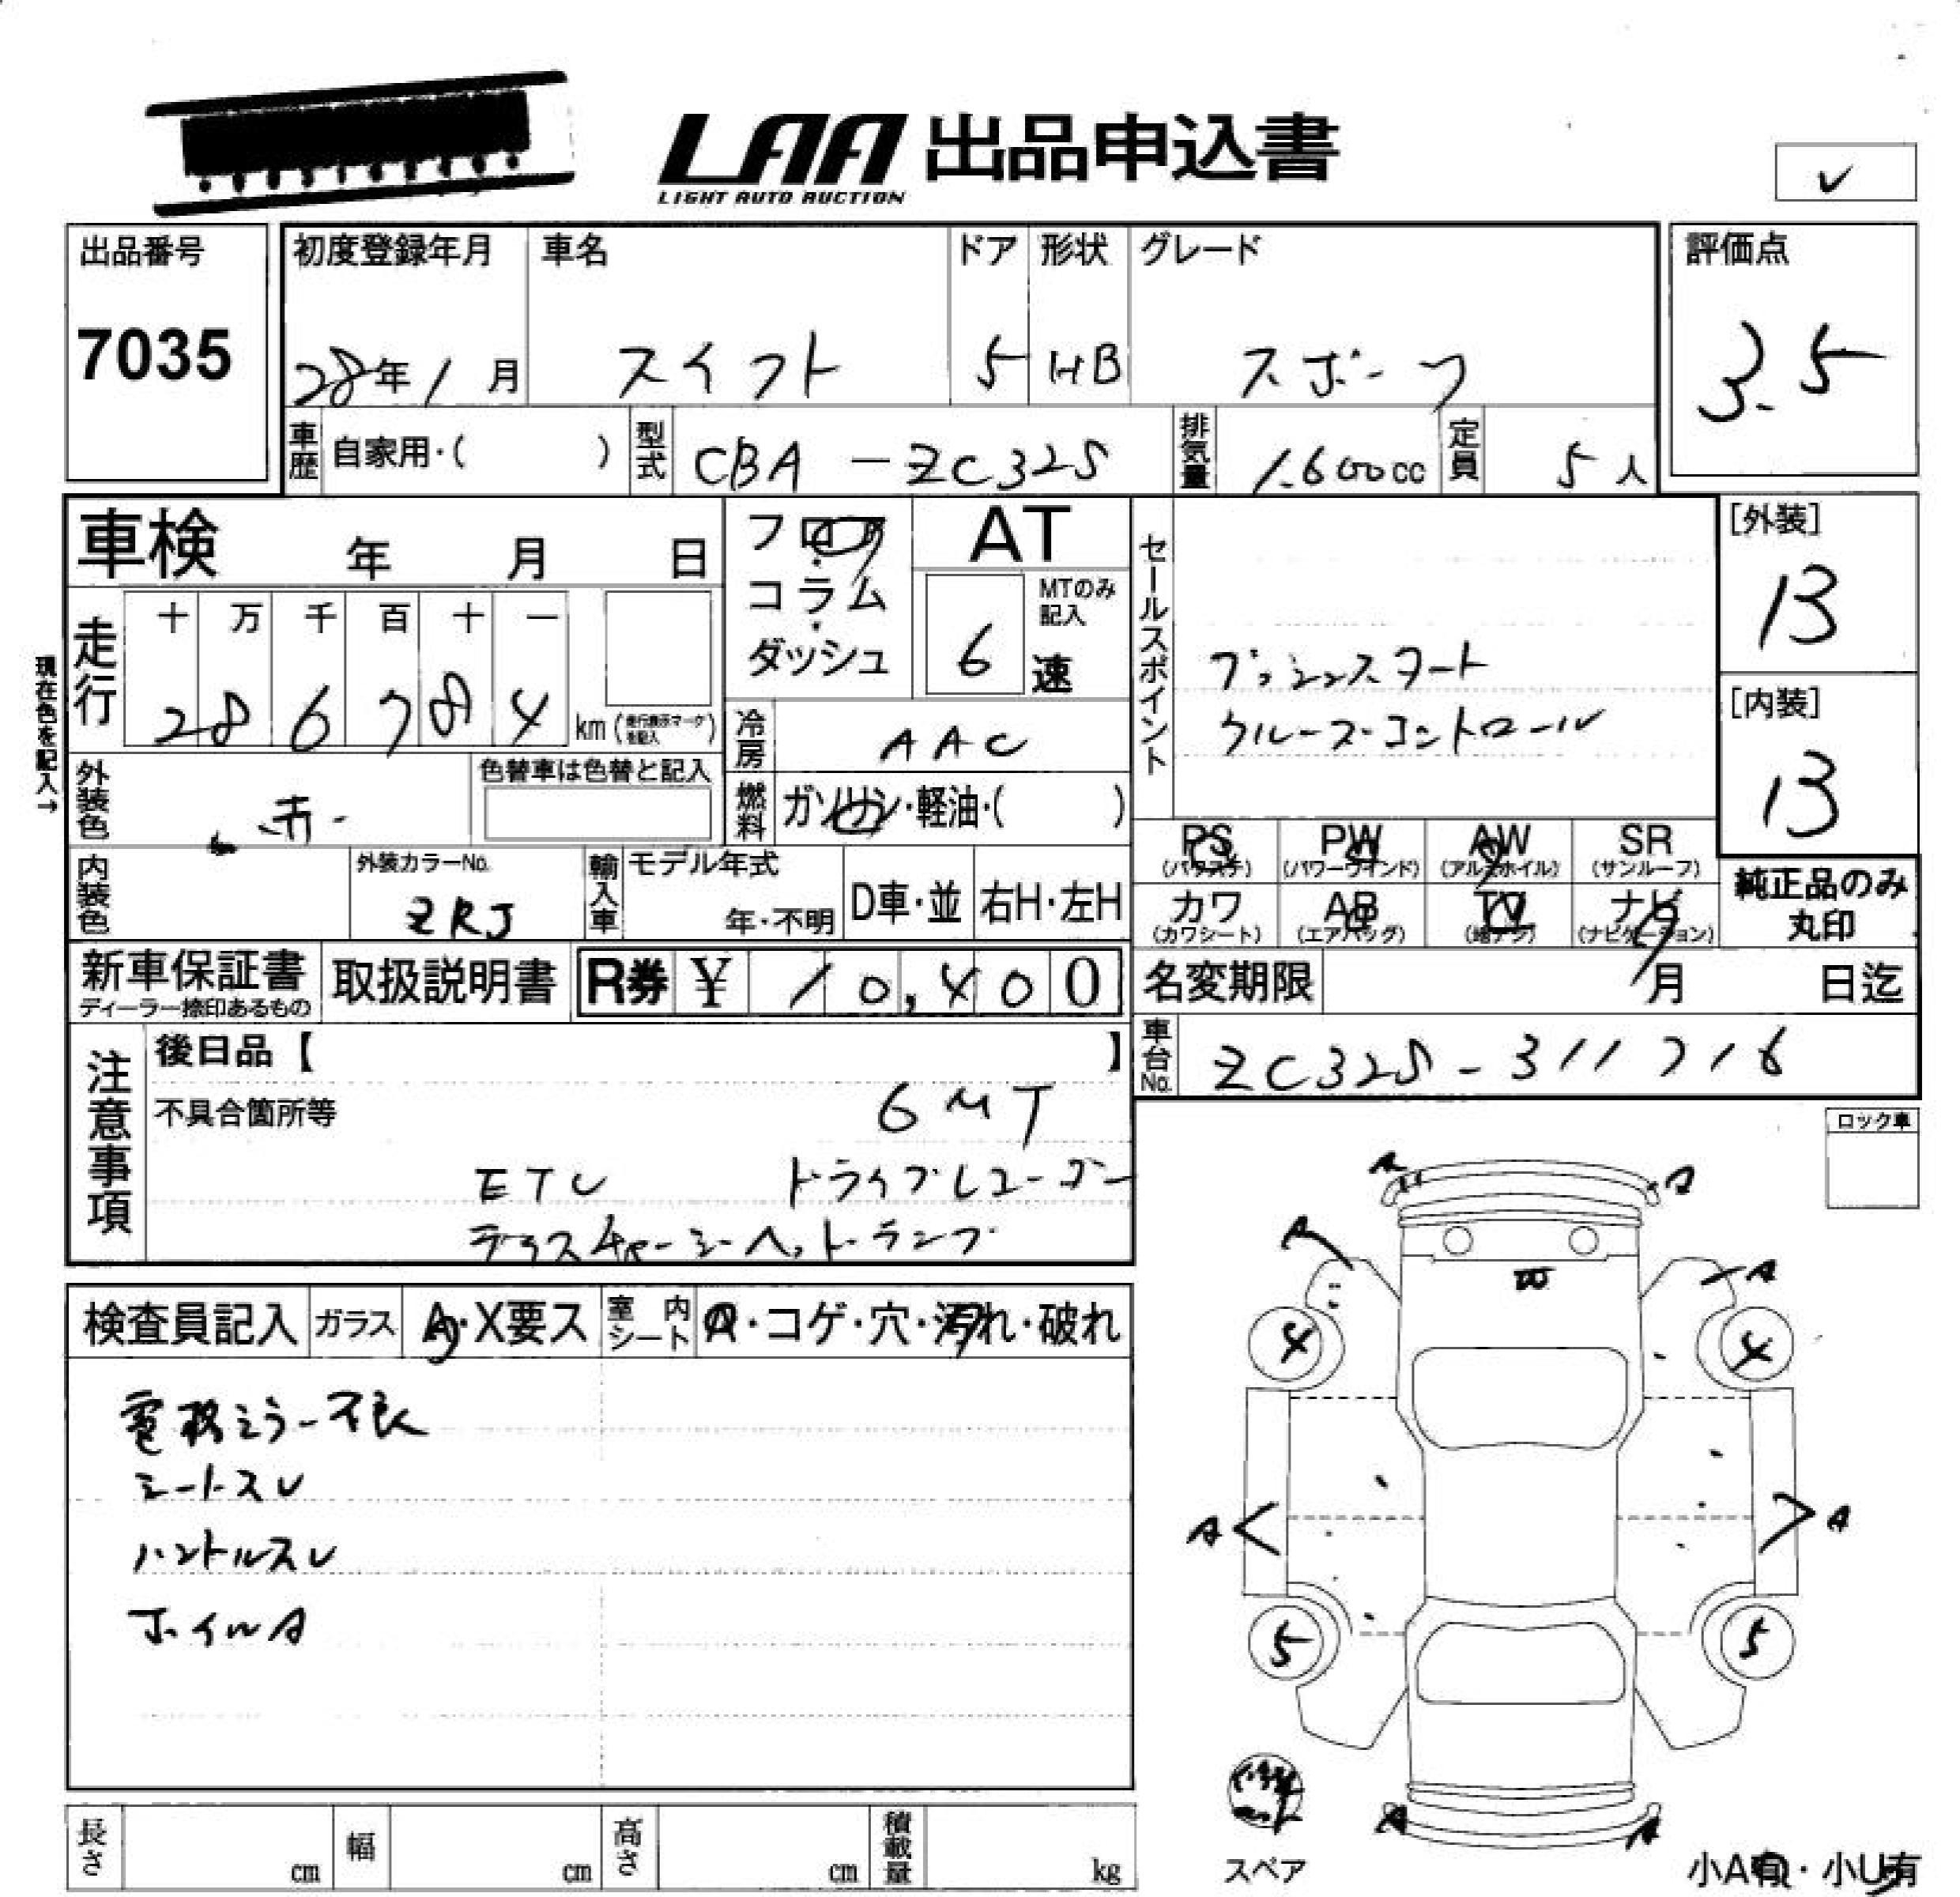 LAA 出品申込書
LIGHT AUTO AUCTION
✓
出品番号
7035
初度登録年月 車名 ドア 形状 グレード
28年1月 スイフト 5 HB スポーツ
評価点
3.5
車歴 自家用・( ) 型式 CBA-ZC32S 排気量 1.600cc 定員 5人
車検 年 月 日
フロア
コラム
ダッシュ
AT
MTのみ記入
6 速
セールスポイント
プッシュスタート
クルーズコントロール
[外装]
13
[内装]
13
現在色を記入→
走行 十 万 千 百 十 一
286784 km (走行表示マークを記入)
冷房 AAC
外装色 赤
色替車は色替と記入
燃料 ガソリン・軽油・( )
内装色
外装カラーNo.
ZRJ
輸入車 モデル年式
年・不明 D車・並 右H・左H
PS (パワステ) PW (パワーウインド) AW (アルミホイル) SR (サンルーフ)
カワ (カワシート) AB (エアバッグ) TV (地デジ) ナビ (ナビゲーション)
純正品のみ
丸印
新車保証書
ディーラー捺印あるもの
取扱説明書 R券 ¥ 10,400
名変期限 月 日迄
車台No. ZC32S-311716
注意事項
後日品【 】
不具合箇所等 6MT
ETC ドライブレコーダー
ディスチャージヘットランプ
ロック車
検査員記入 ガラス A・X要ス 室内シート A・コゲ・穴・汚れ・破れ
電格ミラー不良
シートスレ
ハンドルスレ
ホイルA
A
A
A
4 4
A A
5 5
A A
スペア
小A有・小U有
長さ cm 幅 cm 高さ cm 積載量 kg